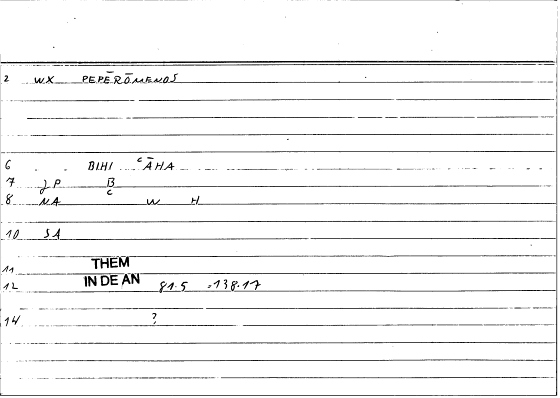 2 WX PEPĒRŌMENOS
6 . . BIHI ʿĀHA
7 JP B
8 NA C W H
10 SA
11 THEM
12 IN DE AN 81.5 =138.17
14 ?